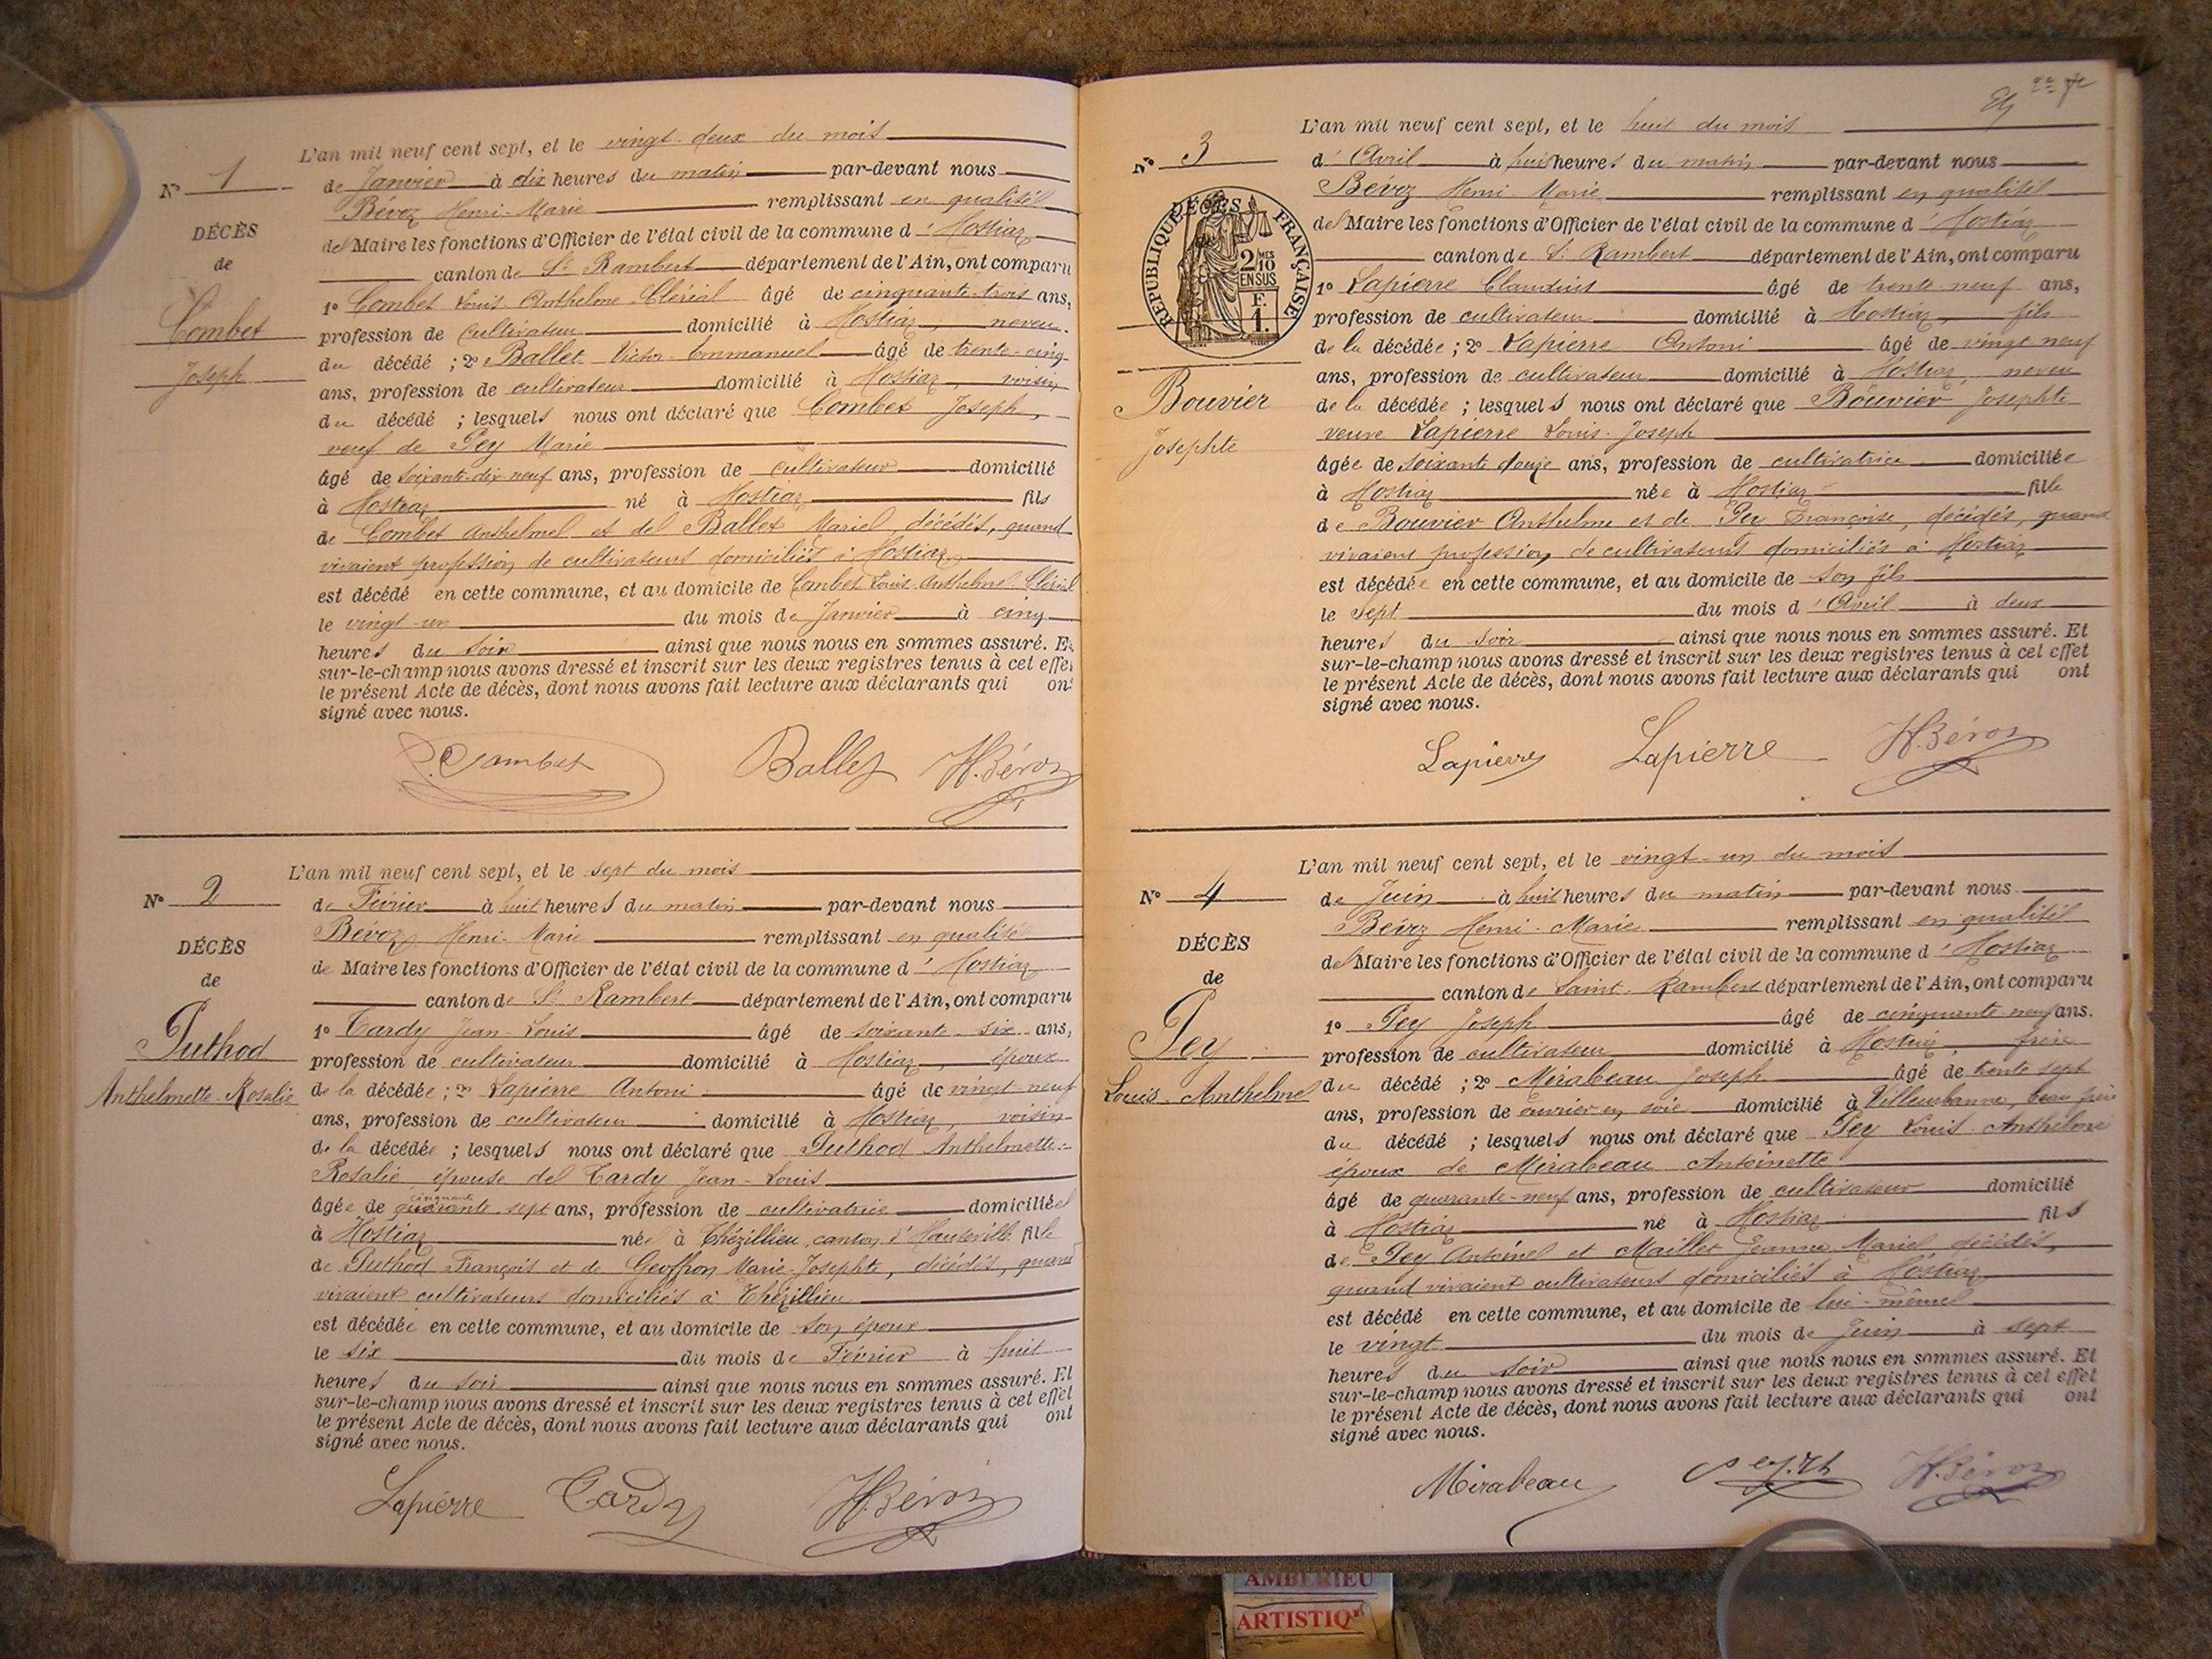 L'an mil neuf cent sept, et le vingt-deux du mois
N° 1
de Janvier à dix heures du matin par-devant nous
Bévoz Henri-Marie remplissant en qualité
DÉCÈS
de Maire les fonctions d'Officier de l'état civil de la commune d'Hostiaz
de
canton de St Rambert département de l'Ain, ont comparu
1° Combet Louis-Anthelme Clérial âgé de cinquante-trois ans,
Combet
profession de cultivateur domicilié à Hostiaz, neveu
du décédé ; 2° Ballet Victor-Emmanuel âgé de trente-cinq
Joseph
ans, profession de cultivateur domicilié à Hostiaz, voisin
du décédé ; lesquels nous ont déclaré que Combet Joseph,
veuf de Pey Marie
âgé de soixante-dix-neuf ans, profession de cultivateur domicilié
à Hostiaz né à Hostiaz fils
de Combet Anthelme et de Ballet Marie, décédés, quand
vivaient profession de cultivateurs domiciliés à Hostiaz
est décédé en cette commune, et au domicile de Combet Louis-Anthelme Clérial
le vingt-un du mois de Janvier à cinq
heures du soir ainsi que nous nous en sommes assuré. Et
sur-le-champ nous avons dressé et inscrit sur les deux registres tenus à cet effet
le présent Acte de décès, dont nous avons fait lecture aux déclarants qui ont
signé avec nous.
Combet Ballet H. Bévoz
L'an mil neuf cent sept, et le sept du mois
N° 2
de Février à huit heures du matin par-devant nous
Bevoz Henri-Marie remplissant en qualité
DÉCÈS
de Maire les fonctions d'Officier de l'état civil de la commune d'Hostiaz
de
canton de St Rambert département de l'Ain, ont comparu
1° Tardy Jean-Louis âgé de soixante-six ans,
Puthod
profession de cultivateur domicilié à Hostiaz, époux
Anthelmette-Rosalie
de la décédée ; 2° Lapierre Antoni âgé de vingt neuf
ans, profession de cultivateur domicilié à Hostiaz, voisin
de la décédée ; lesquels nous ont déclaré que Puthod Anthelmette-
Rosalie épouse de Tardy Jean-Louis
cinquante
âgée de quarante-sept ans, profession de cultivatrice domiciliée
à Hostiaz née à Thézillieu, canton d'Hauteville fille
de Puthod François et de Geoffron Marie-Josephte, décédés, quand
vivaient cultivateurs domiciliés à Thézillieu
est décédée en cette commune, et au domicile de son époux
le six du mois de Février à huit
heures du soir ainsi que nous nous en sommes assuré. Et
sur-le-champ nous avons dressé et inscrit sur les deux registres tenus à cet effet
le présent Acte de décès, dont nous avons fait lecture aux déclarants qui ont
signé avec nous.
Lapierre Tardy H. Bévoz
L'an mil neuf cent sept, et le huit du mois
N° 3
d'Avril à huit heures du matin par-devant nous
Bévoz Henri-Marie remplissant en qualité
DÉCÈS
RÉPUBLIQUE FRANÇAISE
2 MES 10 EN SUS
F. 1.
de Maire les fonctions d'Officier de l'état civil de la commune d'Hostiaz
canton de St Rambert département de l'Ain, ont comparu
1° Lapierre Claudius âgé de trente-neuf ans,
profession de cultivateur domicilié à Hostiaz, fils
de la décédée ; 2° Lapierre Antoni âgé de vingt neuf
ans, profession de cultivateur domicilié à Hostiaz, neveu
Bouvier
de la décédée ; lesquels nous ont déclaré que Bouvier Josephte
Josephte
veuve Lapierre Louis-Joseph
âgée de soixante douze ans, profession de cultivatrice domiciliée
à Hostiaz née à Hostiaz fille
de Bouvier Anthelme et de Pey Françoise, décédés, quand
vivaient profession de cultivateurs domiciliés à Hostiaz
est décédée en cette commune, et au domicile de son fils
le sept du mois d'Avril à deux
heures du soir ainsi que nous nous en sommes assuré. Et
sur-le-champ nous avons dressé et inscrit sur les deux registres tenus à cet effet
le présent Acte de décès, dont nous avons fait lecture aux déclarants qui ont
signé avec nous.
Lapierre Lapierre H. Bévoz
L'an mil neuf cent sept, et le vingt-un du mois
N° 4
de Juin à huit heures du matin par-devant nous
Bévoz Henri-Marie remplissant en qualité
DÉCÈS
de Maire les fonctions d'Officier de l'état civil de la commune d'Hostiaz
de
canton de Saint-Rambert département de l'Ain, ont comparu
1° Pey Joseph âgé de cinquante neuf ans.
Pey
profession de cultivateur domicilié à Hostiaz, frère
Louis-Anthelme
du décédé ; 2° Mirabeau Joseph âgé de trente sept
ans, profession de ouvrier en soie domicilié à Villeurbanne, beau frère
du décédé ; lesquels nous ont déclaré que Pey Louis-Anthelme
époux de Mirabeau Antoinette
âgé de quarante-neuf ans, profession de cultivateur domicilié
à Hostiaz né à Hostiaz fils
de Pey Antoine et Maillet Jeanne Marie, décédés,
quand vivaient cultivateurs domiciliés à Hostiaz
est décédé en cette commune, et au domicile de lui-même
le vingt du mois de Juin à sept
heures du soir ainsi que nous nous en sommes assuré. Et
sur-le-champ nous avons dressé et inscrit sur les deux registres tenus à cet effet
le présent Acte de décès, dont nous avons fait lecture aux déclarants qui ont
signé avec nous.
Mirabeau H. Bévoz
AMBERIEU
ARTISTIQ